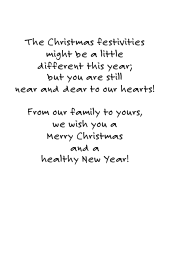 The Christmas festivities
might be a little
different this year;
but you are still
near and dear to our hearts!
From our family to yours,
we wish you a
Merry Christmas
and a
healthy New Year!